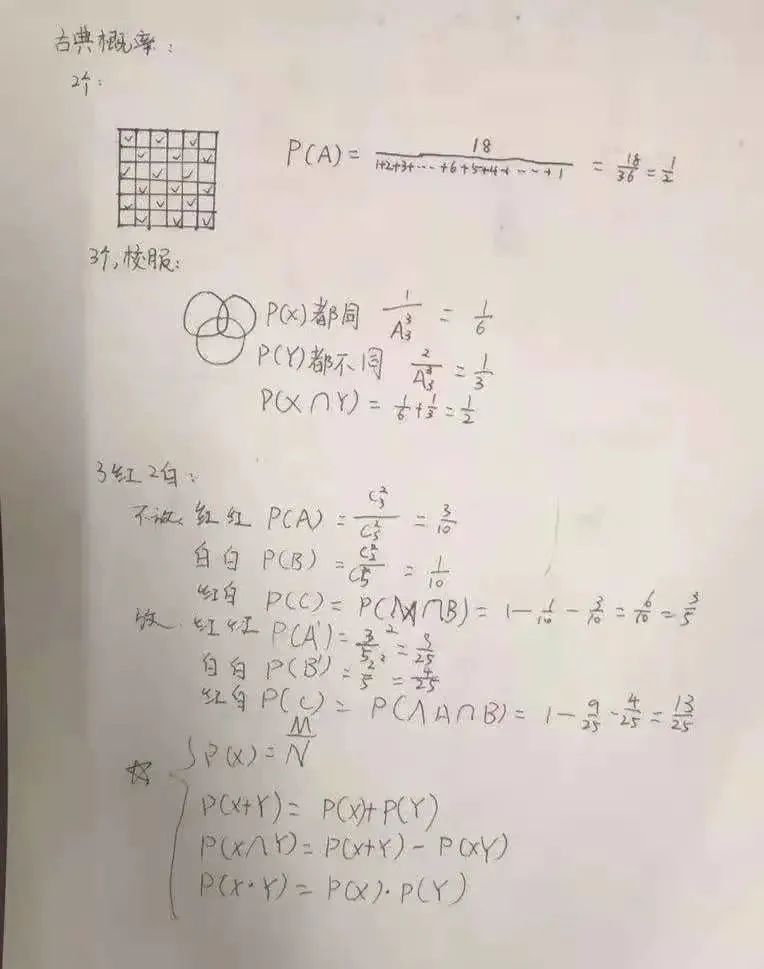 古典概率：
2个：
P(A) = 18/(1+2+3+…+6+5+4+…+1) = 18/36 = 1/2
3个，校服：
P(X)都同 1/A₃³ = 1/6
P(Y)都不同 2/A₃³ = 1/3
P(X∩Y) = 1/6 + 1/3 = 1/2
3红2白：
不放、红红 P(A) = C₃²/C₅² = 3/10
白白 P(B) = C₂²/C₅² = 1/10
红白 P(C) = P(∩B) = 1 - 1/10 - 3/10 = 6/10 = 3/5
放、红红 P(A') = 3/5² = 9/25
白白 P(B') = 2/5² = 4/25
红白 P(C) = P(∧A∩B) = 1 - 9/25 - 4/25 = 13/25
☆ P(X) = M/N
P(X+Y) = P(X)+P(Y)
P(X∩Y) = P(X+Y) - P(XY)
P(X·Y) = P(X)·P(Y)